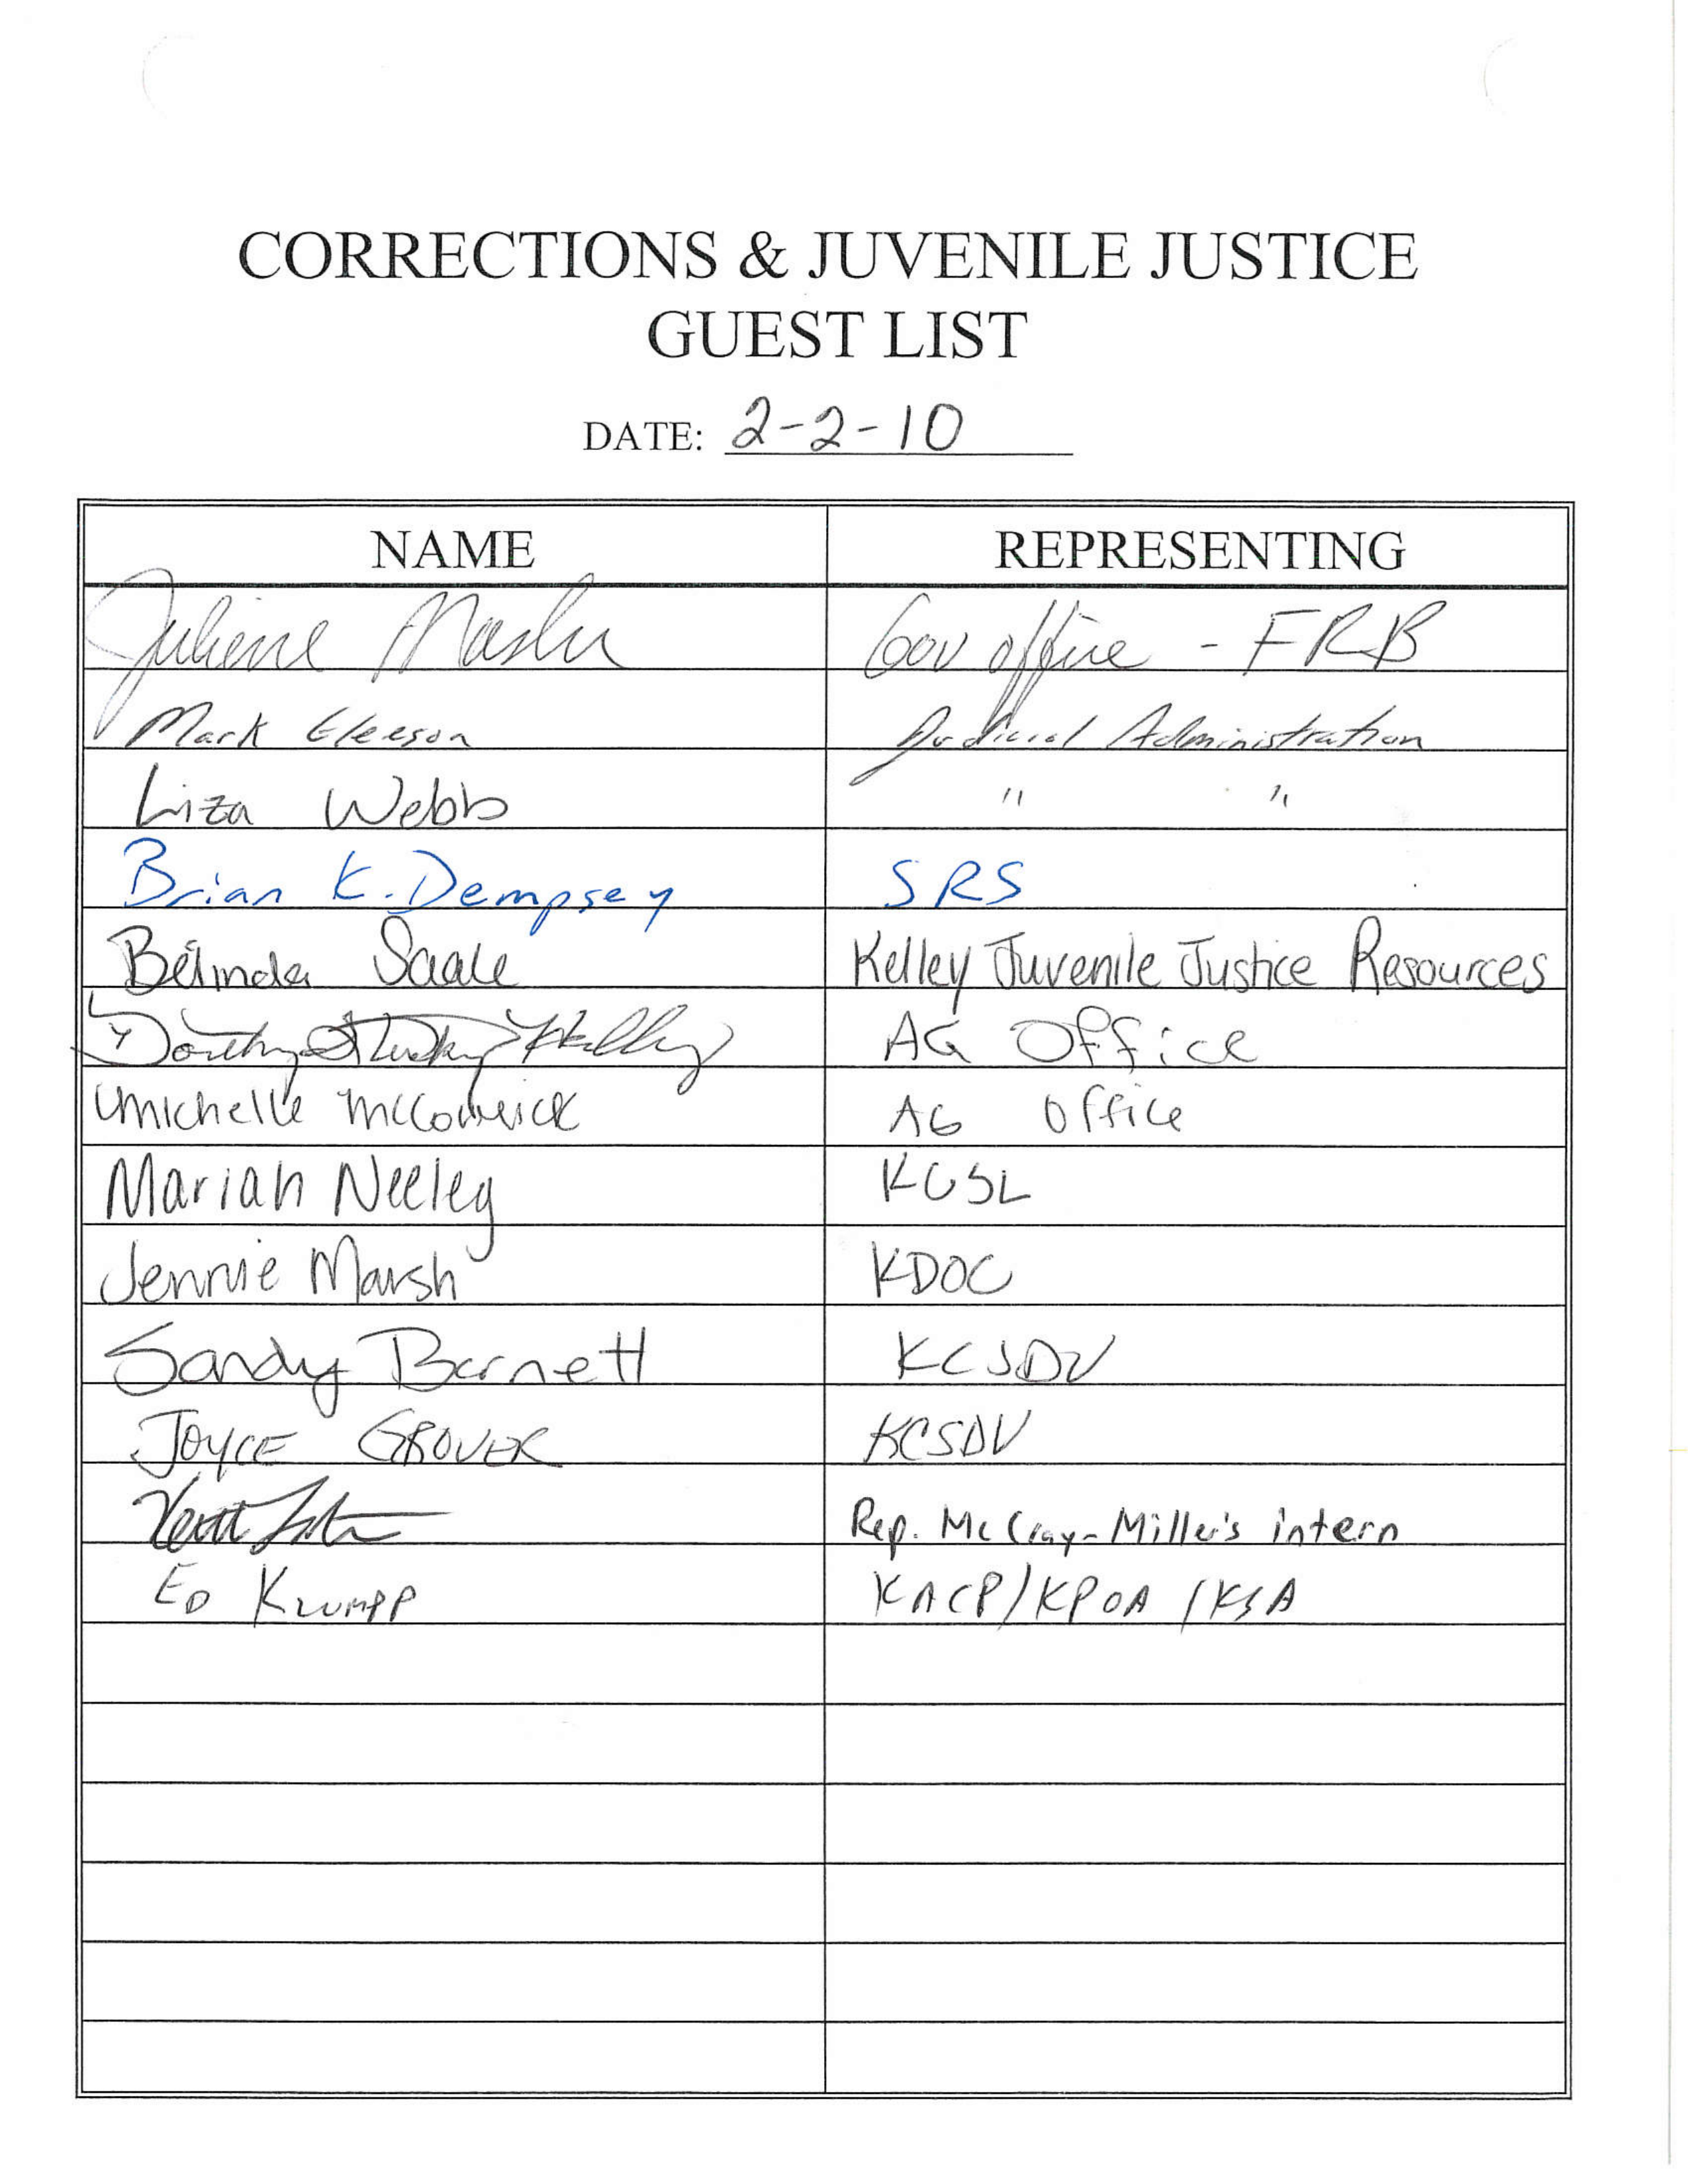 CORRECTIONS & JUVENILE JUSTICE
GUEST LIST
DATE: 2-2-10
NAME REPRESENTING
Juliene Gov office - FRB
Mark Gleeson Judicial Administration
Liza Webb " "
Brian K. Dempsey SRS
Belinda Saale Kelley Juvenile Justice Resources
Dorthy AG Office
Michelle McCormick AG Office
Mariah Neeley KCSL
Jennie Marsh KDOC
Sandy Barnett KCSDV
JOYCE GROVER KCSDV
Rep. McCray-Miller's intern
ED KLUMPP KACP/KPOA/KSA